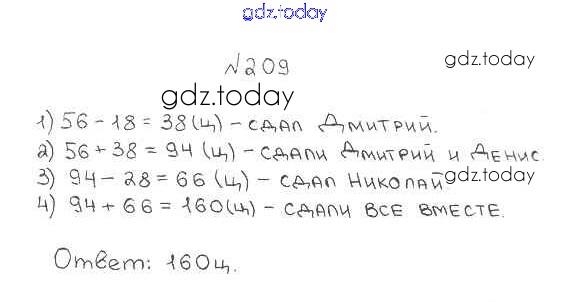 gdz.today
№209
gdz.today
gdz.today
1) 56 - 18 = 38 (ц) - сдал Дмитрий.
2) 56 + 38 = 94 (ц) - сдали Дмитрий и Денис
3) 94 - 28 = 66 (ц) - сдал Николай
gdz.today
4) 94 + 66 = 160 (ц) - сдали все вместе.
Ответ: 160 ц.